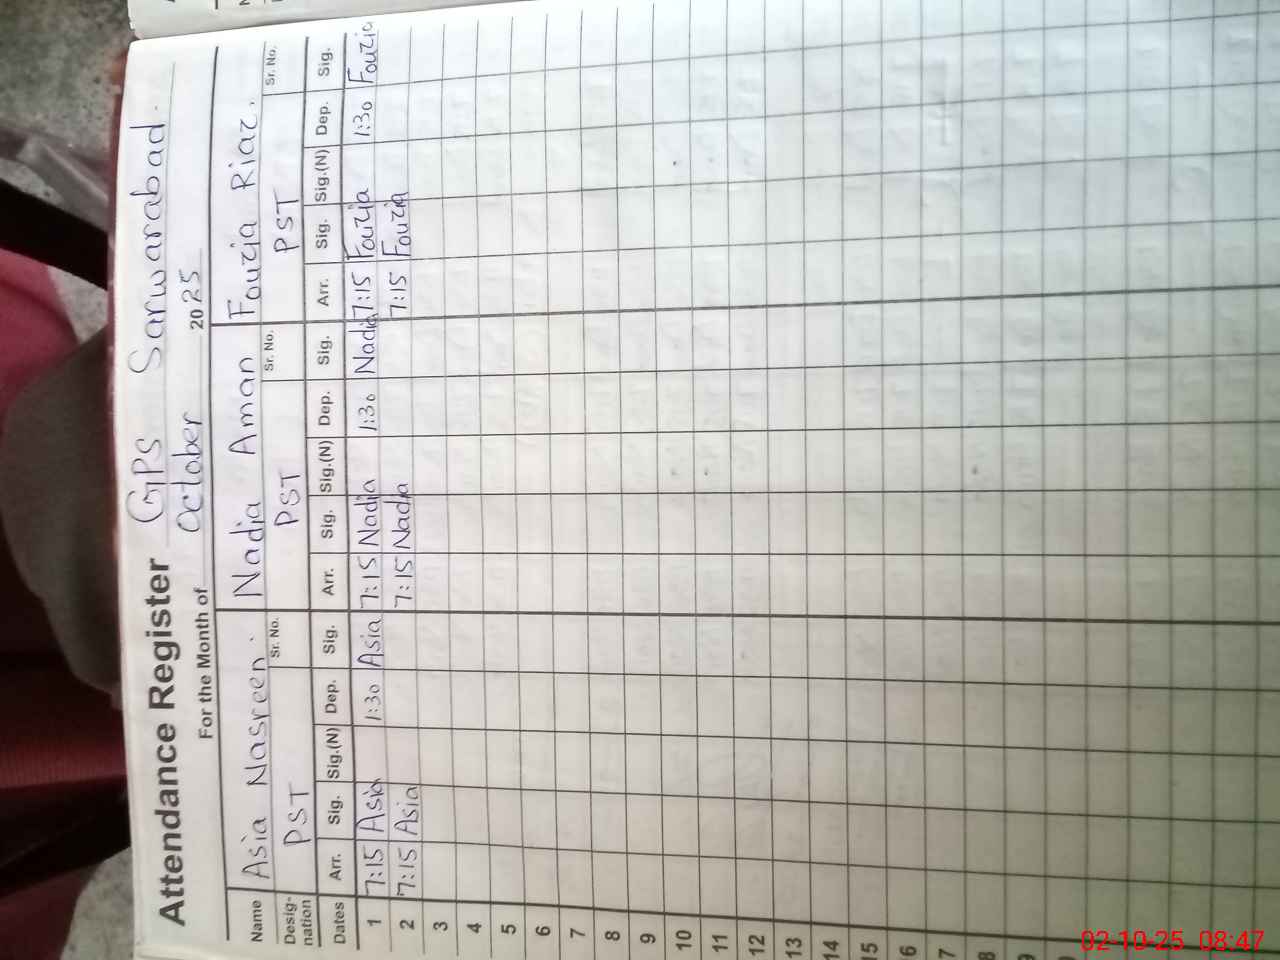 Attendance Register GPS Sarwarabad.
For the Month of October 2025
Name Asia Nasreen. Nadia Aman Fouzia Riaz.
Designation PST Sr. No. PST Sr. No. PST Sr. No.
Dates Arr. Sig. Sig.(N) Dep. Sig. Arr. Sig. Sig.(N) Dep. Sig. Arr. Sig. Sig.(N) Dep. Sig.
1 7:15 Asia 1:30 Asia 7:15 Nadia 1:30 Nadia 7:15 Fouzia 1:30 Fouzia
2 7:15 Asia 7:15 Nadia 7:15 Fouzia
3
4
5
6
7
8
9
10
11
12
13
14
15
16
7
8
9
02-10-25 08:47